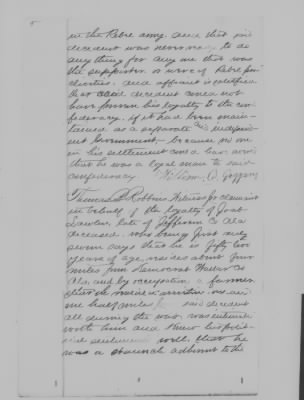 in the Rebel army and that said
decedent was never known to do
any thing for any one that was
the supporter or arm of Rebel
and affiant is satisfied
that said decedent could not
have proven his loyalty to the con-
federacy, if it had been main-
tained as a separate and independent
Government, because no one
in his settlement could have said
that he was a loyal man to said
confederacy William D.
Thomas Robbins Witness for claimant
in behalf of the loyalty of
late of Jefferson Co Ala
deceased, who being first duly
sworn says that he is fifty two
years of age, resides about four
miles from Democrat Walker Co
Ala, and by occupation a farmer
that he resided within
one half miles said decedent
all during the war, was intimate
with him and knew his polit-
ical sentiments well. that he
was a staunch adherent to the